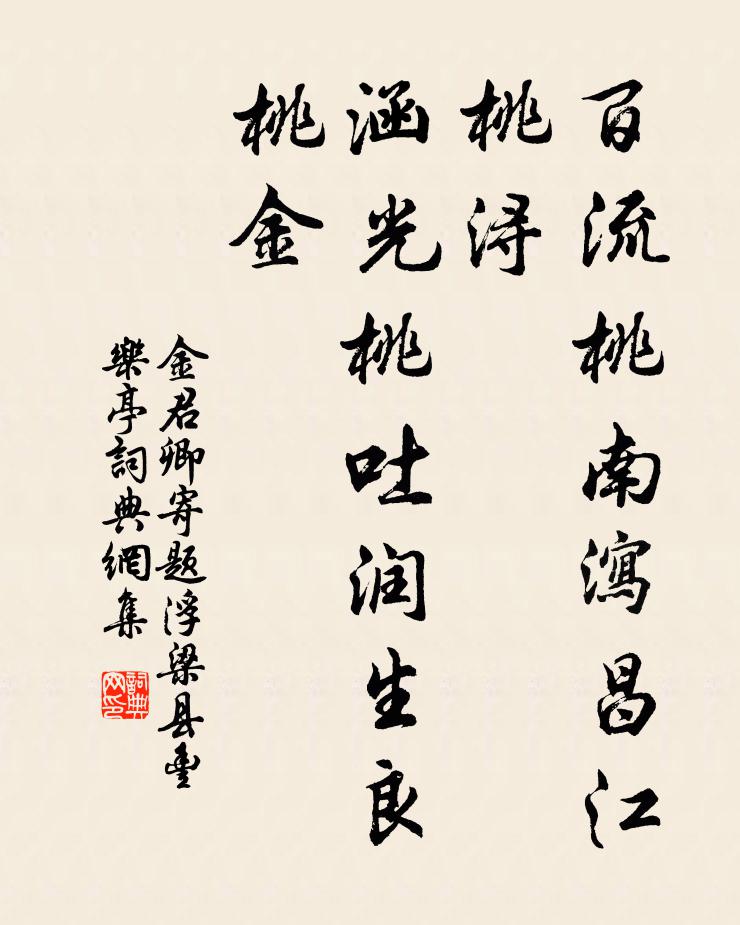 百流桃南瀉昌江
桃浔
涵光桃吐润生良
桃金
金君卿寄题浮梁县豐
樂亭詞典網集
詞典网印